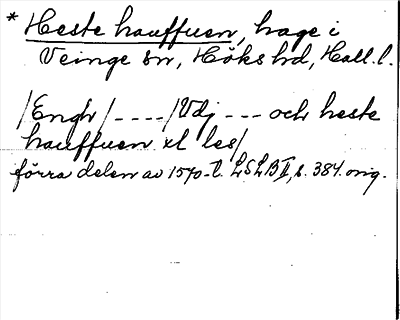 * Heste hauffuen, hage i
Veinge sn, Höks hd, Hall. l.
/Engh/ ---- /Vdj --- och heste
hauffuen xl les/
förra delen av 1540-t. LSLB II, s. 384. orig.